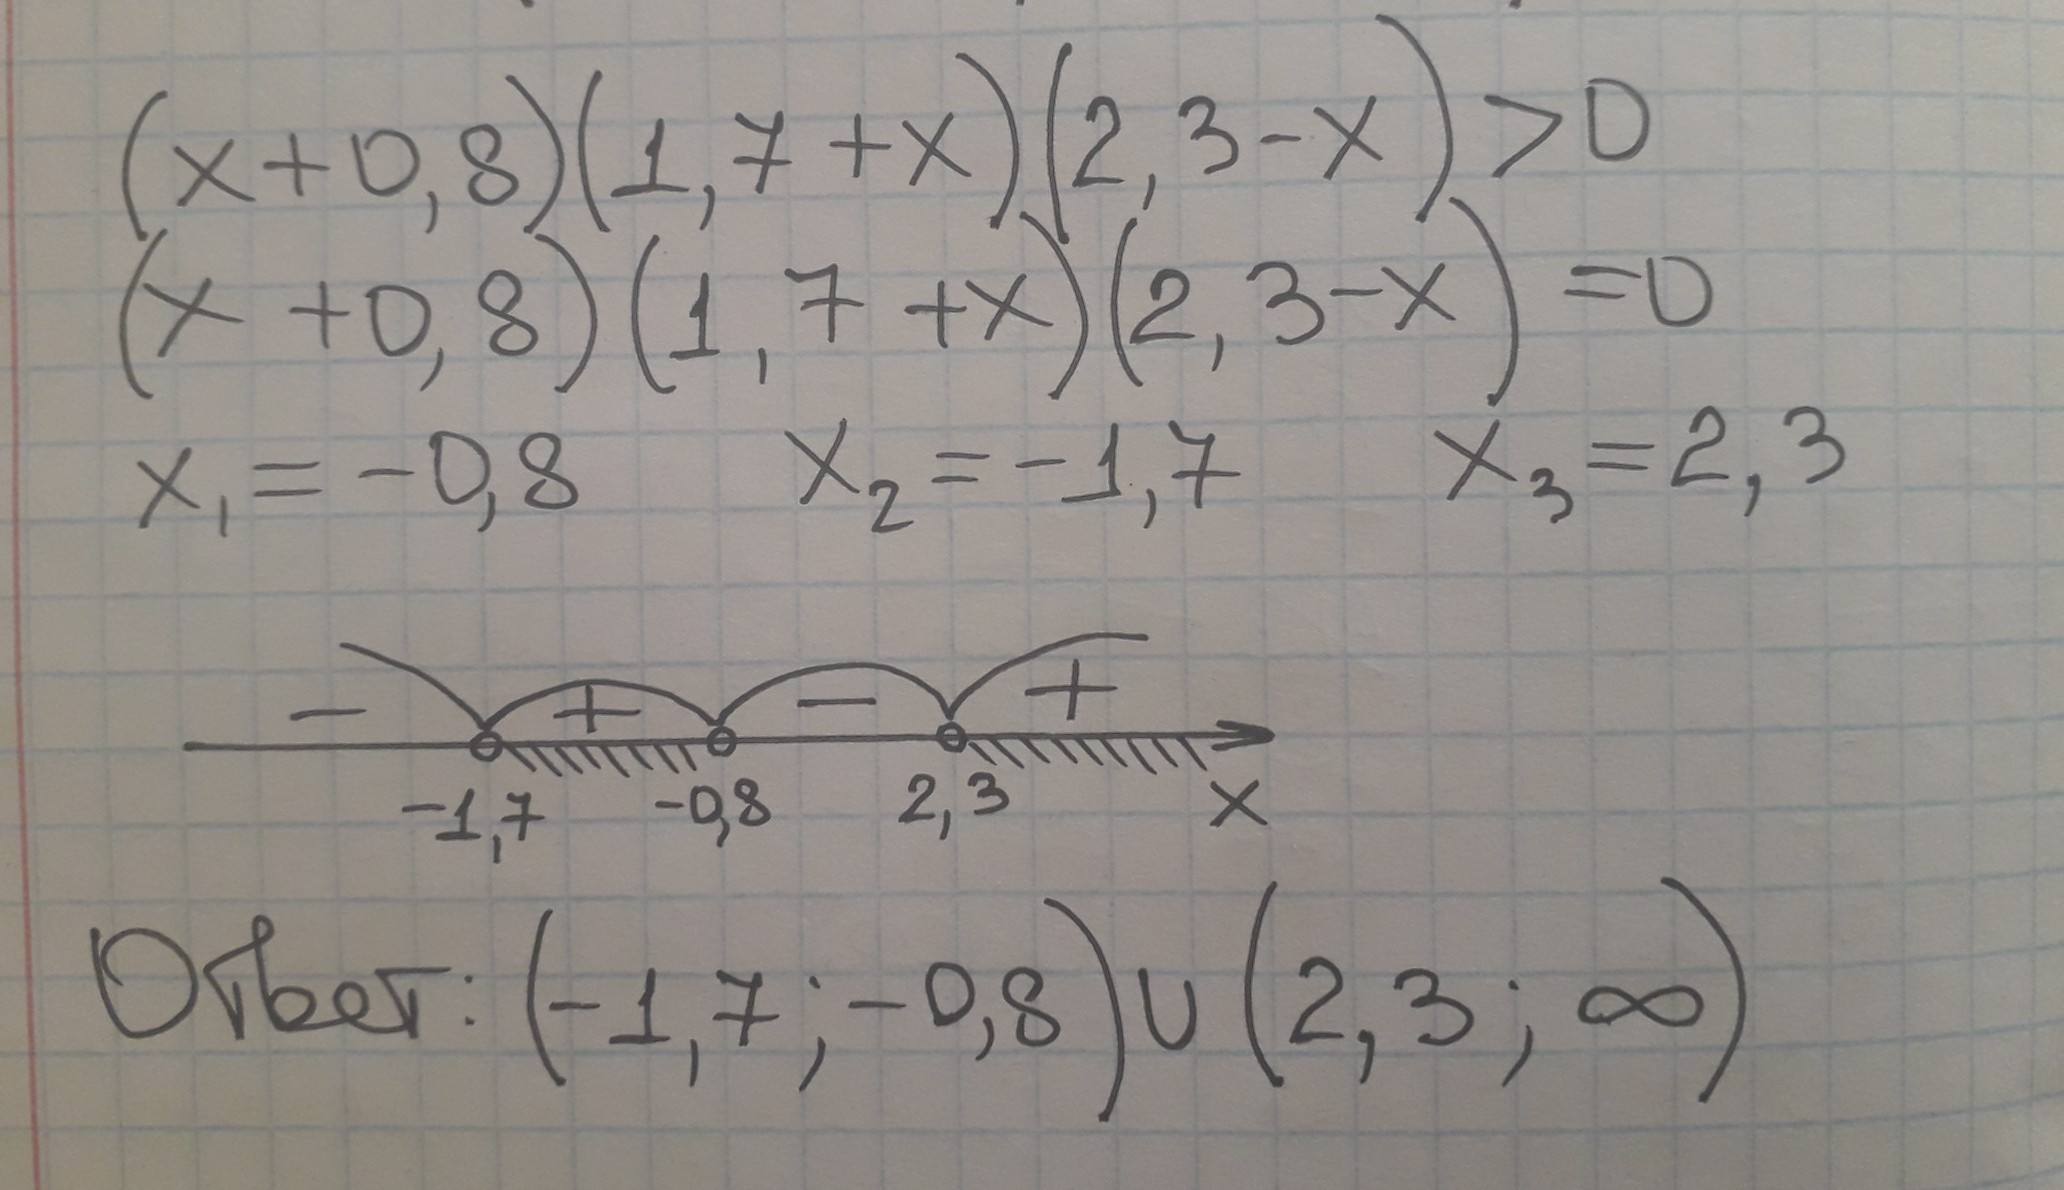 (x+0,8)(1,7+x)(2,3-x)>0
(x+0,8)(1,7+x)(2,3-x)=0
x₁=-0,8 x₂=-1,7 x₃=2,3
- + - +
-1,7 -0,8 2,3 x
Ответ: (-1,7;-0,8)∪(2,3;∞)